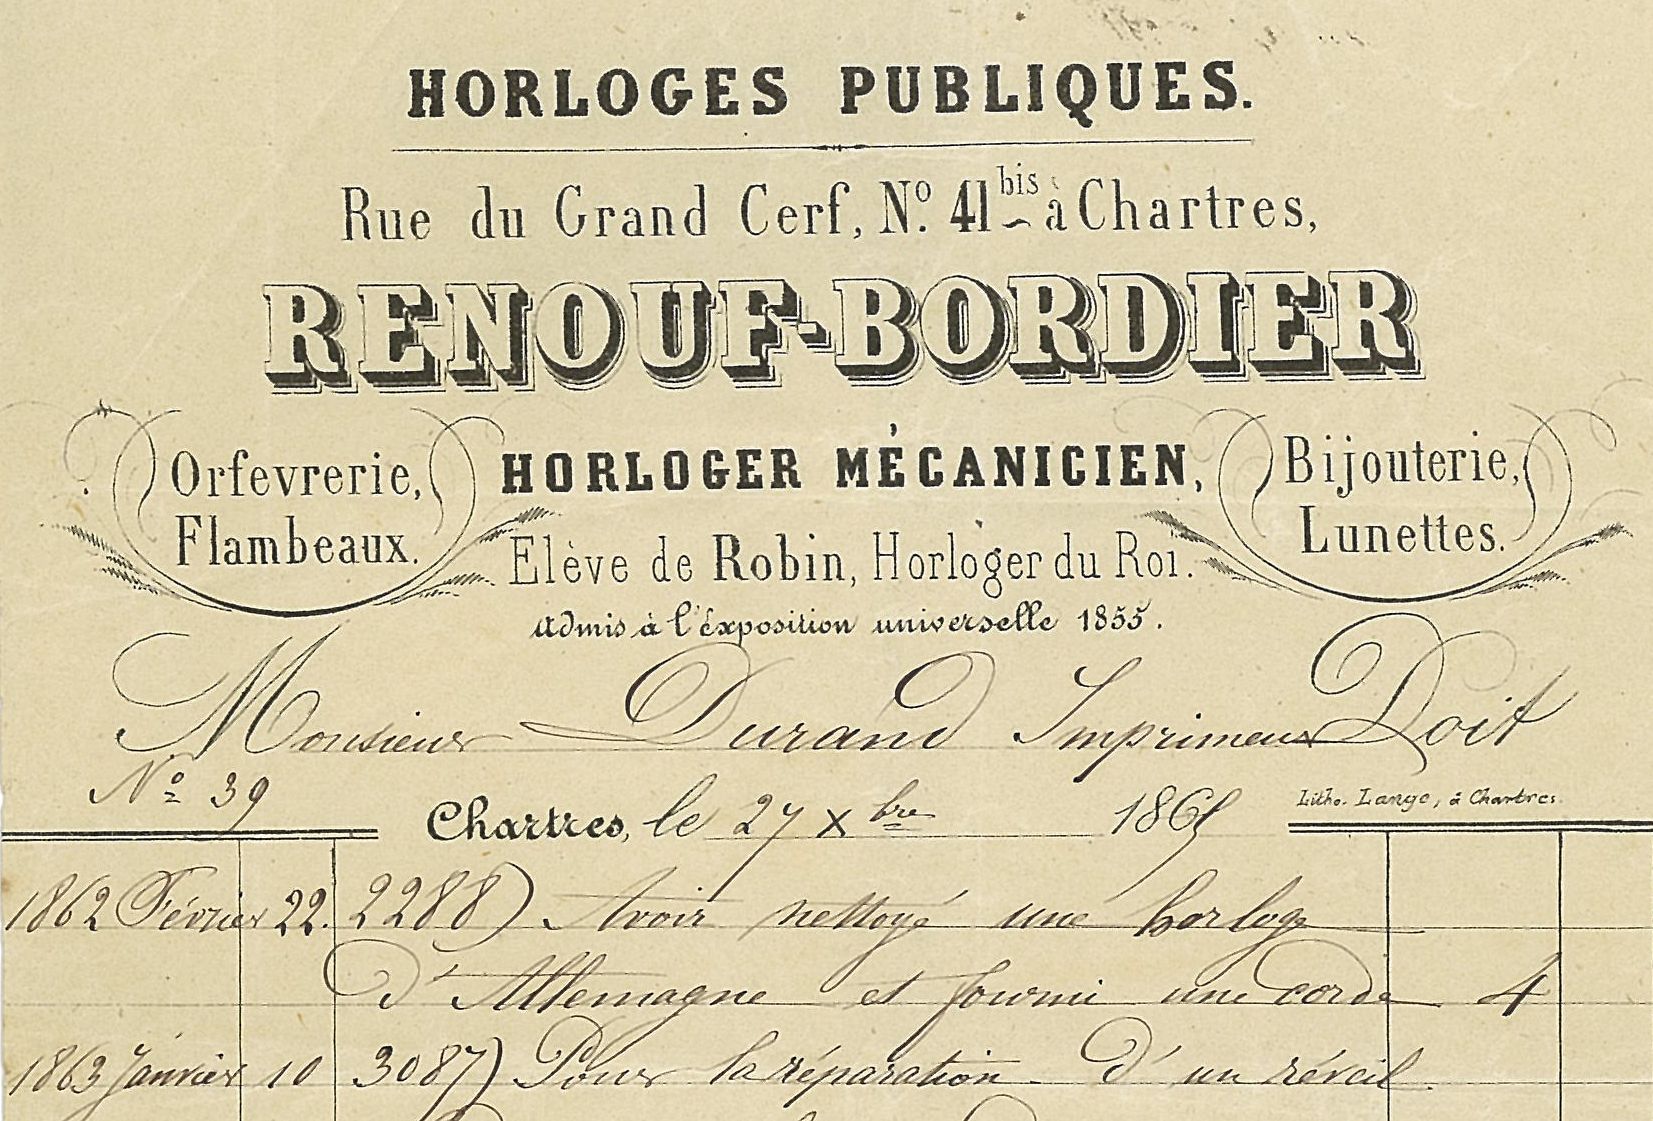 HORLOGES PUBLIQUES.
Rue du Grand Cerf, Nº. 41 bis à Chartres,
RENOUF-BORDIER
Orfevrerie, Flambeaux.
HORLOGER MÉCANICIEN,
Bijouterie, Lunettes.
Elève de Robin, Horloger du Roi.
Admis à l'éxposition universelle 1855.
Monsieur Durand Imprimeur Doit
Nº 39
Chartres, le 27 Xbre 1865
Litho. Lange, à Chartres.
1862 Février 22. 2288) Avoir nettoyé une horloge
d'Allemagne et fourni une corde 4
1863 Janvier 10 3087) Pour la réparation d'un réveil.